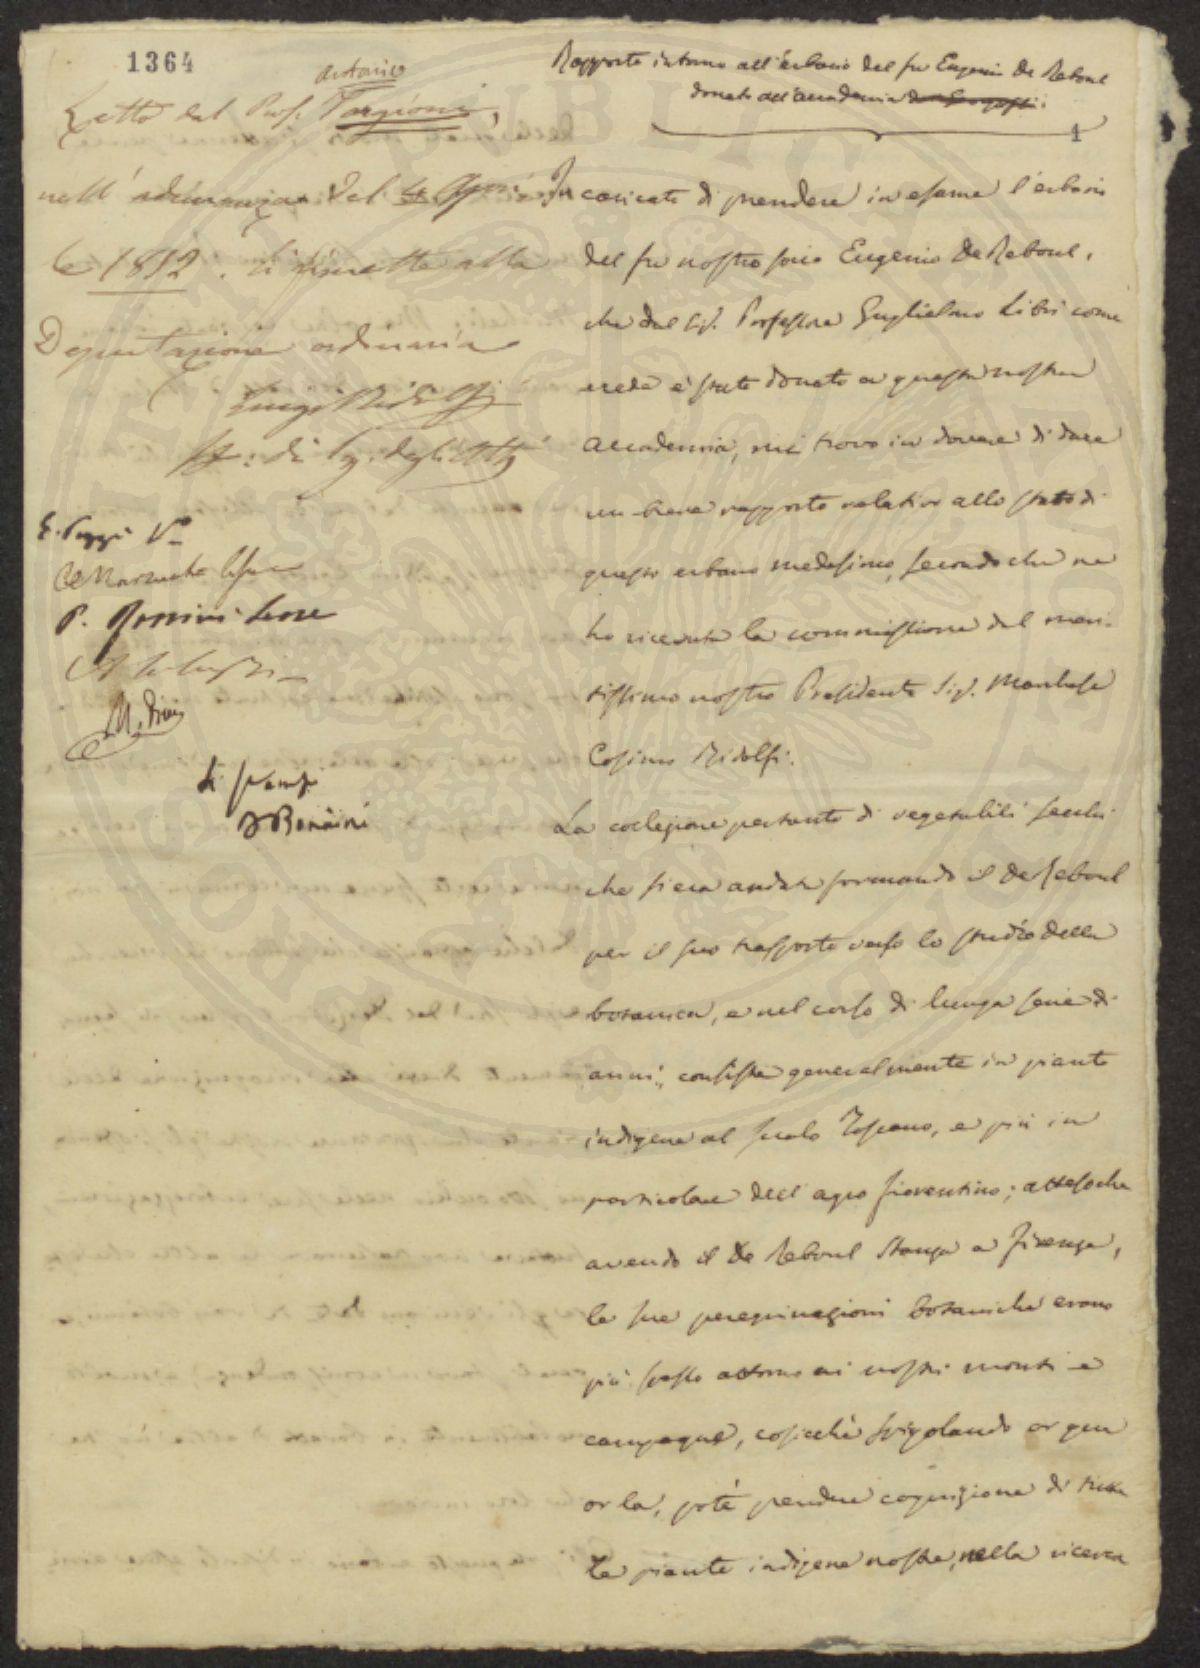 1364
Rapporto intorno all'erbario del fu Eugenio De Reboul
donato all'accademia
1
Antonio
Letto dal Prof. Targioni,
nell'adunanza del 4 Aprile
1852. Si rimette alla
Deputazione ordinaria
Luigi Ridolfi
E. Poggi
M. Dini
Si stampi
Bonaini
Incaricato di prendere in esame l'erbario
del fu nostro socio Eugenio De Reboul,
che dal Sig. Professore Guglielmo Libri come
erede è stato donato a questa nostra
accademia, mi trovo in dovere di dare
un breve rapporto relativo allo stato di
questo erbario medesimo, secondo che ne
ho ricevuta la commissione dal meri-
tissimo nostro Presidente Sig. Marchese
Cosimo Ridolfi.
La collezione pertanto di vegetabili secchi
che si era andata formando il De Reboul
per il suo trasporto verso lo studio della
botanica, e nel corso di lunga serie di
anni, consiste generalmente in piante
indigene al suolo Toscano, e più in
particolare dell'agro fiorentino; attesochè
avendo il De Reboul stanza a Firenze,
le sue peregrinazioni botaniche erano
più spesso attorno ai nostri monti e
campagne, cosicchè spigolando or qua
or la, potè prendere cognizione di tutte
le piante indigene nostre, nella ricerca